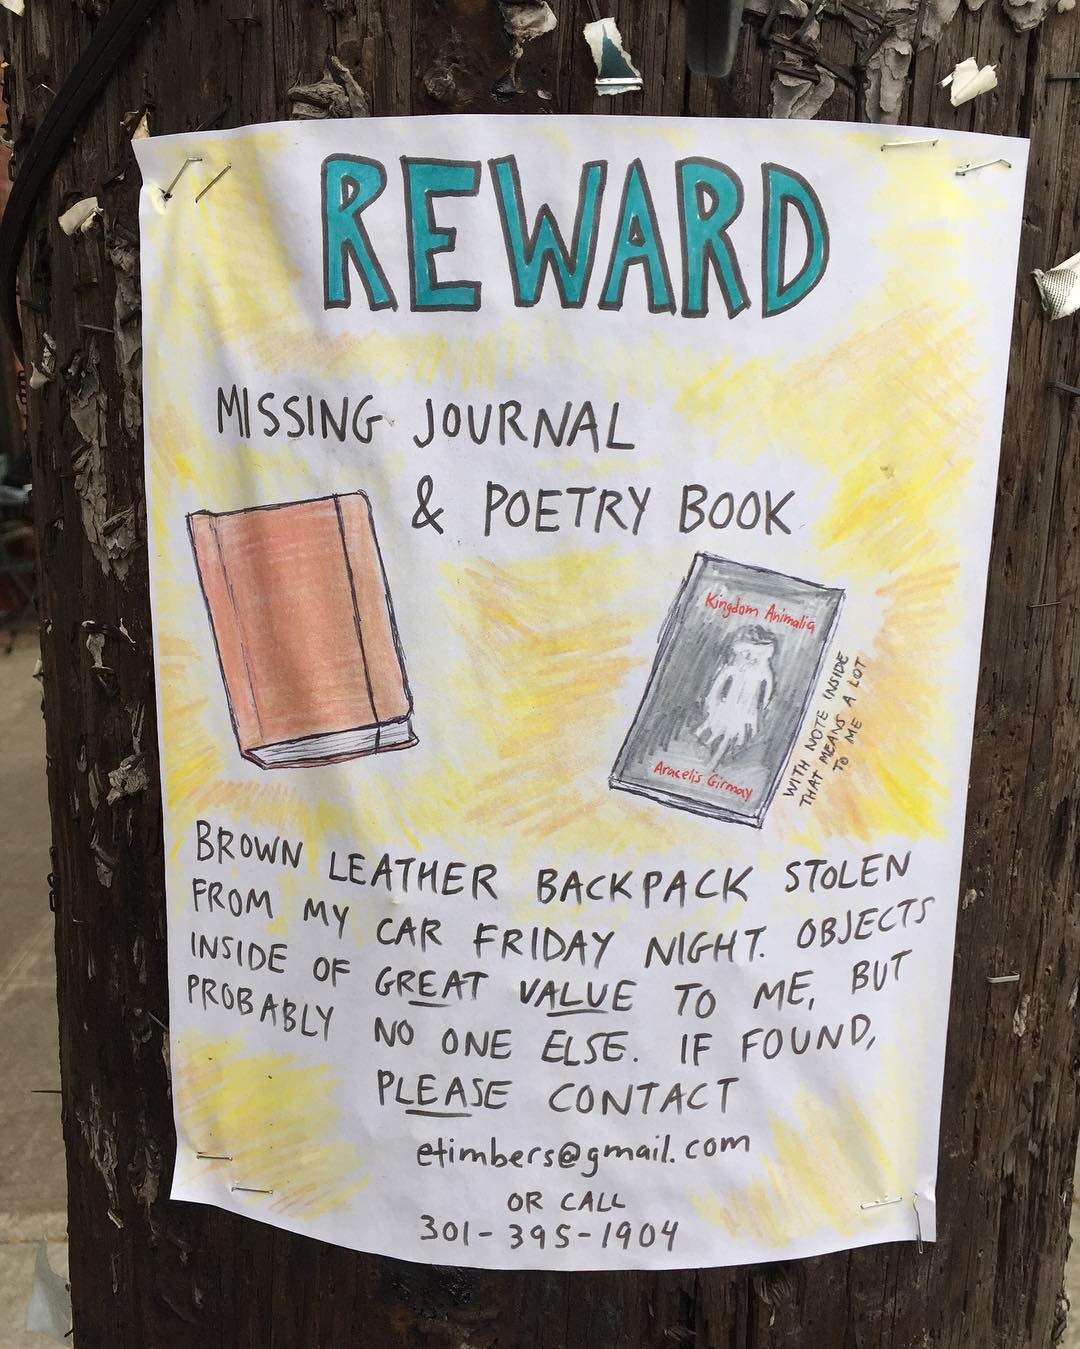 REWARD
MISSING JOURNAL
& POETRY BOOK
Kingdom Animalia
Aracelis Girmay
WITH NOTE INSIDE
THAT MEANS A LOT
TO ME
BROWN LEATHER BACKPACK STOLEN
FROM MY CAR FRIDAY NIGHT. OBJECTS
INSIDE OF GREAT VALUE TO ME, BUT
PROBABLY NO ONE ELSE. IF FOUND,
PLEASE CONTACT
etimbers@gmail.com
OR CALL
301-395-1904